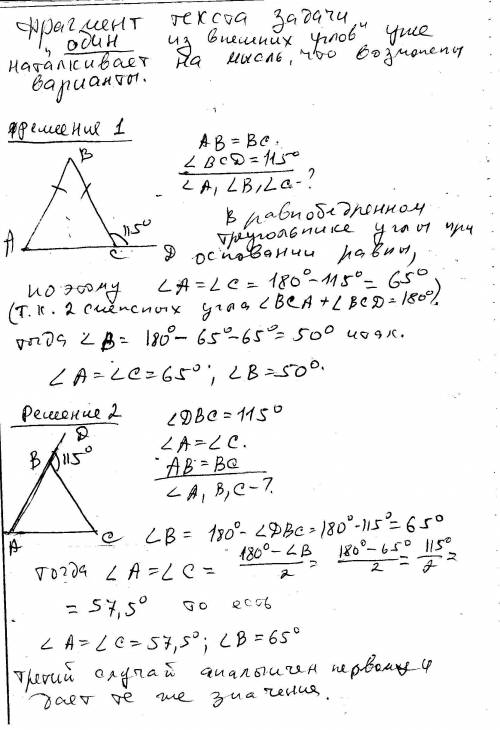 фрагмент текста задачи
"один из внешних углов" уже
наталкивает на мысль, что возможны
варианты.
Решение 1
AB = BC.
∠BCD = 115°
∠A, ∠B, ∠C - ?
B
A
C
D
115°
В равнобедренном
треугольнике углы при
основании равны,
поэтому ∠A = ∠C = 180° - 115° = 65°
(т.к. 2 смежных угла ∠BCA + ∠BCD = 180°).
тогда ∠B = 180° - 65° - 65° = 50° итак.
∠A = ∠C = 65°; ∠B = 50°.
Решение 2
∠DBC = 115°
∠A = ∠C.
AB = BC
∠A, B, C - ?
D
B
115°
A
C
∠B = 180° - ∠DBC = 180° - 115° = 65°
тогда ∠A = ∠C = (180° - ∠B)/2 = (180° - 65°)/2 = 115°/2 =
= 57,5° то есть
∠A = ∠C = 57,5°; ∠B = 65°
третий случай аналогичен первому и
дает те же значения.